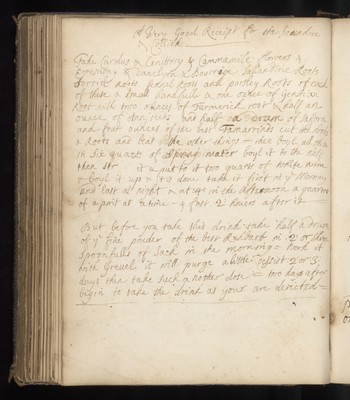 A Very Good Receipt for the Jaundice
& Collick
Take Cardus & Centtory & Cammamile flowers &
& Dandelyon & Bourage Roots
Dorock roots fennel roots and parsley Roots of each
of these a small handfull & one ounce of
Root with two ounces of Turmerick root & half an
ounce of and half a Dram of Safforn
and four ounces of the best Tamarinds cut the roots
& Roots and beat the other things then boyl all this
in Six quarts of Spring water boyl it to the half
then it & put to it two quarts of white wine
boyl it up & it done take it first in ye Morning
and last at night & at 4 in the afternoon a quarter
of a pint at a time & fast 2 houers after it
But before you take this drink take half a Dram
of ye fine powder of the best Rubarb in 2 or three
Spoonfulls of Sack in the morning work it
with Gruel it will purge a little 2 or 3
days then take such another dose two days after
begin to take the drink as your are derected